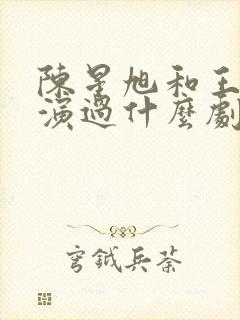 陳星旭和王
演過什麼劇
穹鉞兵荼